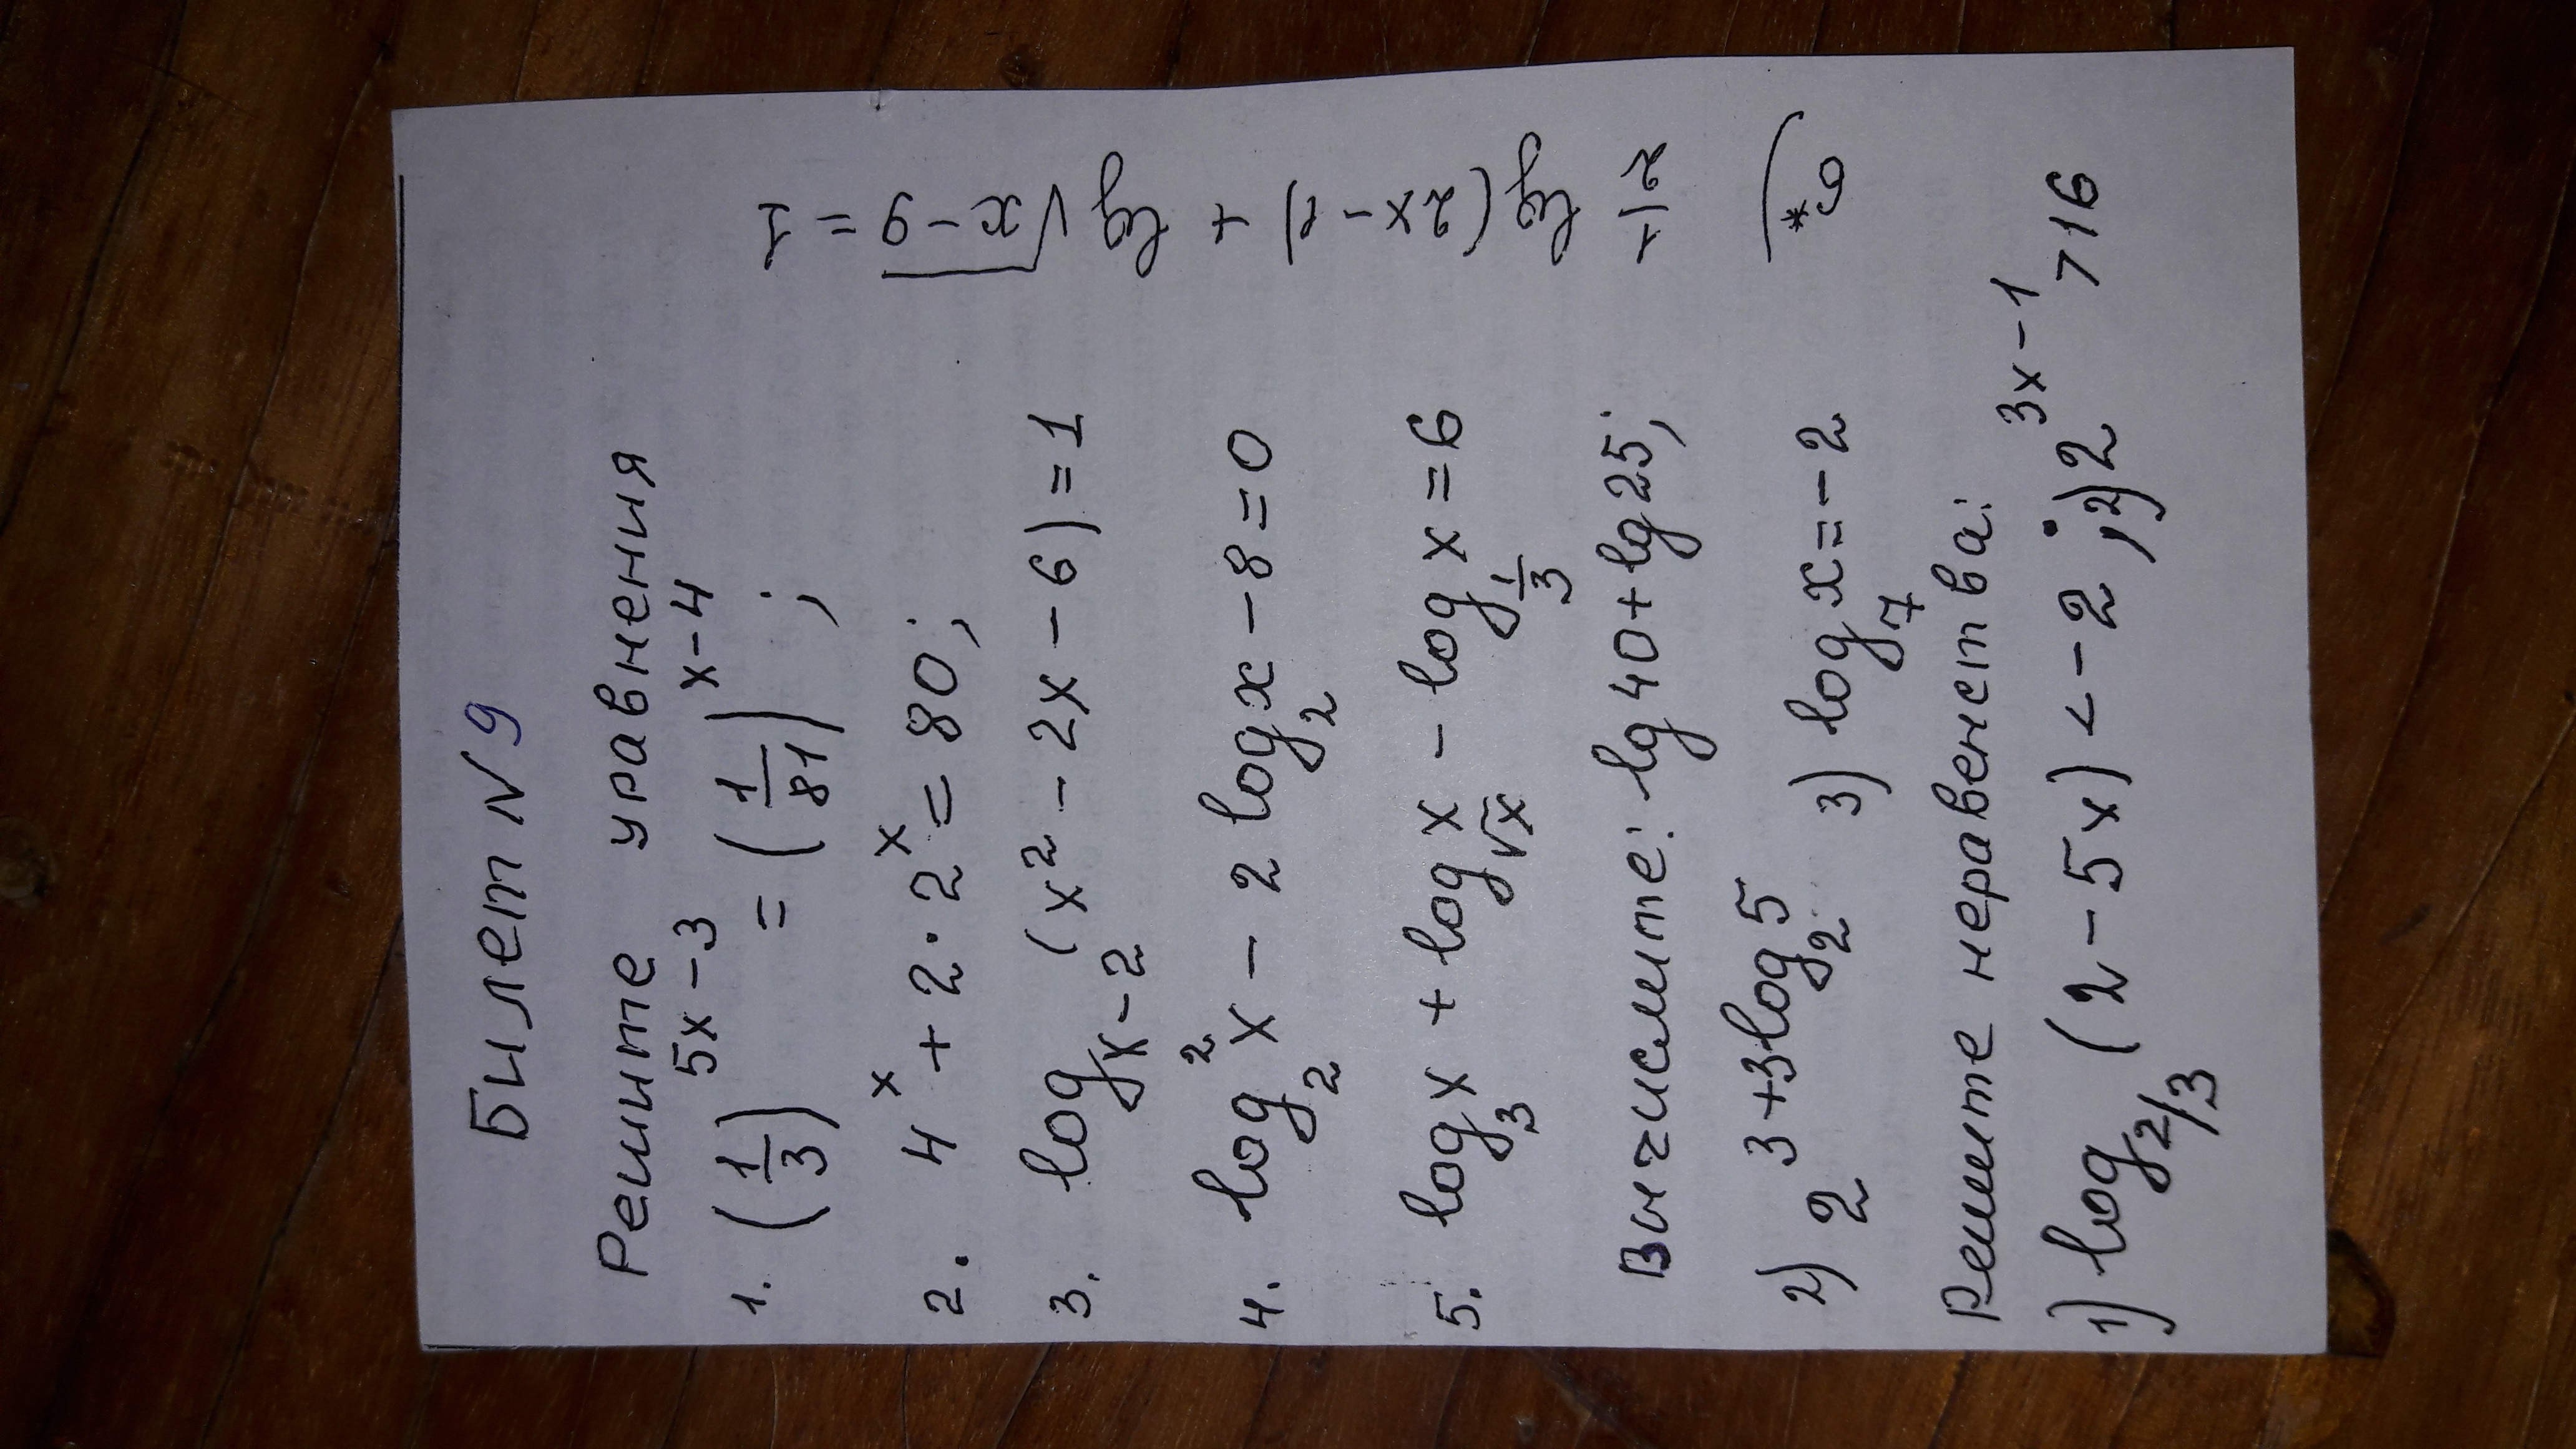 Билет N 9
Решите уравнения
1. (1/3)^{5x-3} = (1/81)^{x-4};
2. 4^x + 2 · 2^x = 80;
3. log_{x-2} (x² - 2x - 6) = 1
4. log₂² x - 2 log₂ x - 8 = 0
5. log₃ x + log_{√x} x - log_{1/3} x = 6
Вычислите: lg 40 + lg 25;
2) 2^{3+3log₂5} 3) log₇ x = -2
Решите неравенства:
1) log_{2/3} (2 - 5x) < -2; 2) 2^{3x-1} > 16
6*) 1/2 lg (2x - 1) + lg √(x-9) = 1